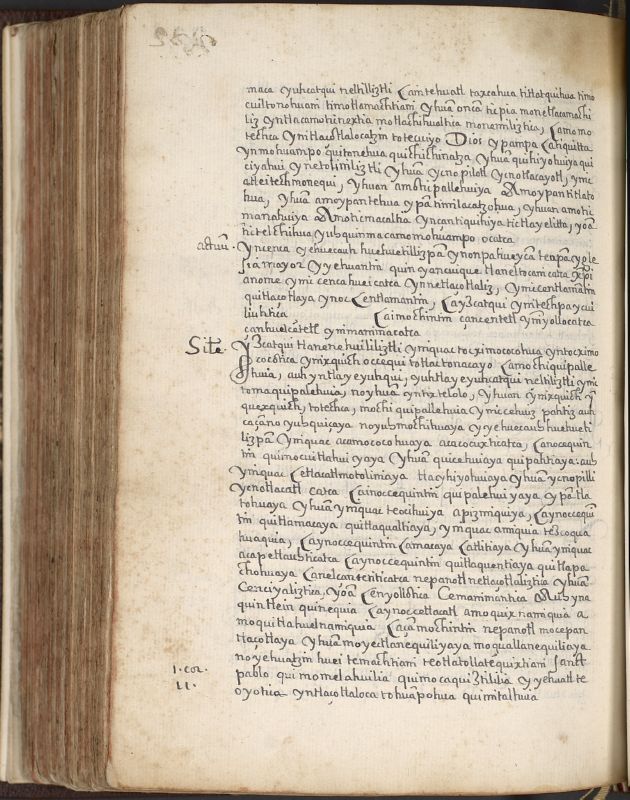 maca yuhcatqui neltiliztli Ca intehuatl taxcahua titlatquihua timo
cuiltonohuani timotlamachtiani yhuā oncā ticpia monetlacamachi
liz yntlacamo tinextia motlaçhihualtia monemiliztica, Ca mo mo
techca ynitlaçohtlalocatzin totecuiyo Dios ypampa Ca tiquitta
ynmohuampo quitonehua quichichinatza, yhuā quihiyohuiya qui
ciyahui ynetolinililiztli yhuā ycnopilotl ycnotlacayotl, ynic
atleitech monequi, yhuan amo ticpallehuiya Amo ypantitlato
hua, yhuā amo ypantehua ypā timilacatzohua, yhuan amo tic
manahuiya Amo ticmacaltia ynçan tiquihiya tictlayelitta, yoā
tictelchihua yuhquinmacamo mohuampo ocatca
actuū. yncenca yehuecauh huehuetilizpā ynonpahueycā tenpā ygle
sia mayor yyehuantin quin yancuique tlaneltocani catca xp̄i
anome ynic cenca huei catca ynnetlaçotlaliz, ynic centlamātin
quitlaçotlaya ynoc centlamantin, Ca yzcatqui ynitechpa ycui
liuhtica Ca in mochintin çancentetl yniyollo catca
çanhuelcētetl ynimanima catca
Site yzcatqui tlanenehuililiztli yniquac tocximococohua yntocximo
cocohtica ynixquich occequi totlactonacayo Ca mochi quipalle
huia, auh yntla yeyuhqui, auh tla yeyuhcatqui neltiliztli ynic
toma quipalehuia, noyhuā yntixtelolo, yhuan ynixquich y
quexquich, totechca, mochi quipallehuia ynicehuiz pahtiz auh
caçāno yuhquiçaya noyuhmochihuaya yyehuecauh huehueti
lizpā yniquac acamococohuaya acacocuxticatca, Canocequin
tin quimocuitlahuiyaya yhuā quicehuiaya quipahtiaya: auh
yniquac Cetlacatl motoliniaya tlacyhiyohuiaya yhuā ycnopilli
ycnotlacatl catca Ca in occequintin quipalehuiyaya ypā tla
tohuaya yhuā yniquac teocihuiya apizmiquiya, Ca ynoccequin
tin quitlamacaya quitlaqualtiaya, yniquac amiquia texcoqua
huaquia, Ca ynoccequintin Camacaya Catlitiaya yhuā yniquac
acapetlauhticatca Ca ynoccequintin quitlaquentiaya quitlapa
chohuaya Canelcantenticatca nepanotl netlaçotlaliztica yhuā
Cenciyaliztica, yoā Cenyollohtica Cemanimantica Auh yna
quintlein quinequia Ca ynoccetlacatl amo quixnamiquia a
mo quitlahuelnamiquia Caçā mochintin nepanotl mocepan
tlaçotlaya yhuā moyectlanequiliyaya moquallanequiliaya
no yehuatzin huei temachtiani teotlatollatequixtiani Sanct
1. cor. pablo quimomelahuilia quimocaquiztililia yyehuatl te
11. oyotica yntlaçotlaloca tohuāpohua quimitalhuia